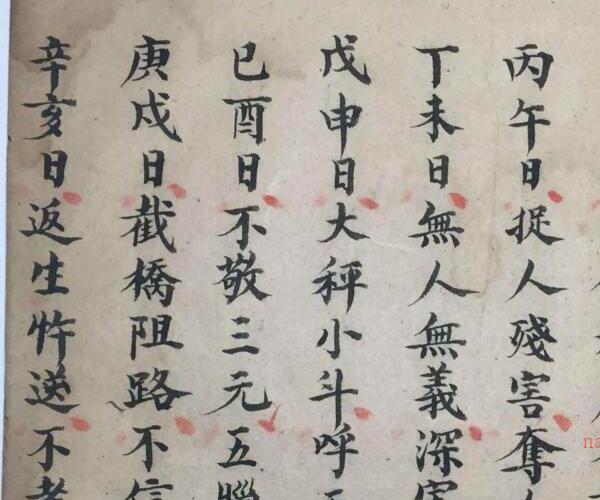 丙午日捉人殘害奪
丁未日無人無義深
戊申日大秤小斗呼
已酉日不敬三元五臘
庚戍日截橋阻路不信
辛亥日返生忤送不孝
na